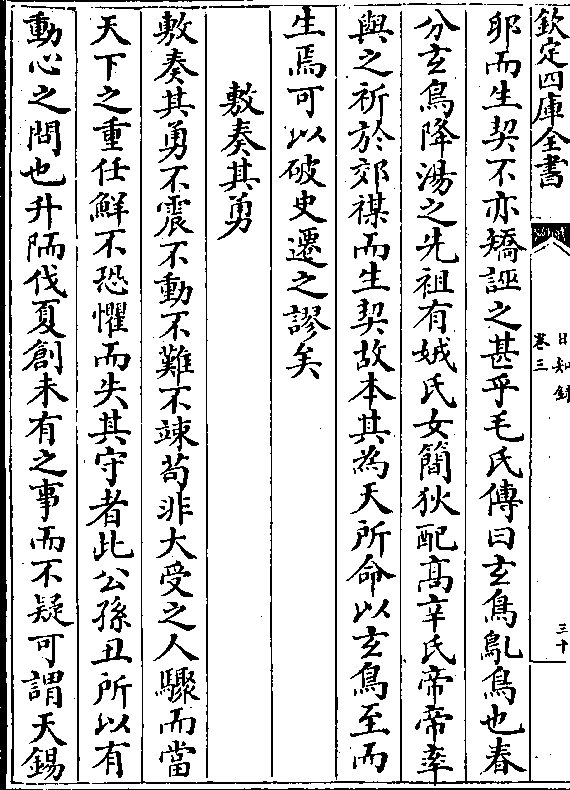 欽定四庫全書
日知錄
卷三
三十
耶而生契不亦矯誣之甚乎毛氏傳曰玄鳥鳦鳥也春
分玄鳥降湯之先祖有娀氏女簡狄配高辛氏帝帝率
與之祈於郊禖而生契故本其為天所命以玄鳥至而
生焉可以破史遷之謬矣
敷奏其勇
敷奏其勇不震不動不難不竦苟非大受之人驟而當
天下之重任鮮不恐懼而失其守者此公孫丑所以有
動心之問也升陑伐夏創未有之事而不疑可謂天錫